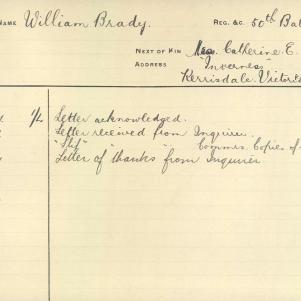 NAME William Brady. REG. &C. 50th Bat
NEXT OF KIN Mrs. Catherine E.
ADDRESS "Inverness"
Kerrisdale. Victoria
1/4 Letter acknowledged.
Letter received from Inquirer.
"Slip" " Commrs. Copies of
Letter of "thanks" from Inquirer